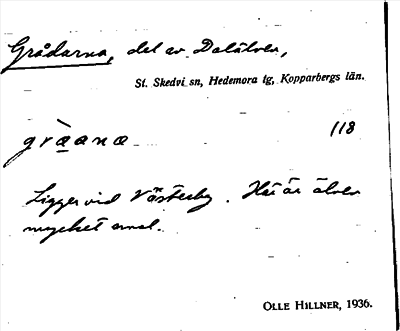 Grådarna, del av Dalälven,
St. Skedvi sn, Hedemora tg, Kopparbergs län.
gràana 118
Ligger vid Västerby. Här är älven
mycket smal.
OLLE HILLNER, 1936.